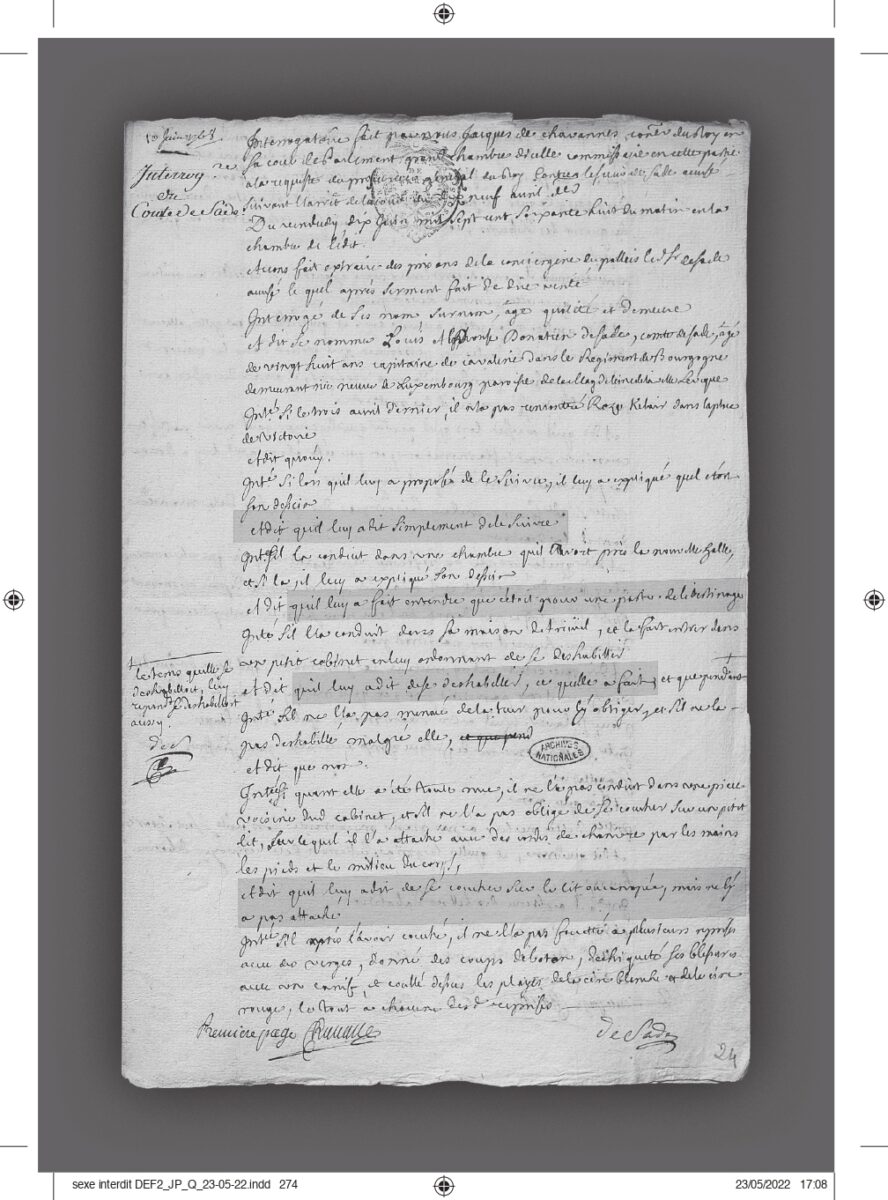 10 Juin 1768
Interrog.re
du
Comte de Sade
Interrogatoire fait par nous Jacques de chavannes coner du Roy en
sa cour de Parlement grand chambre dicelle commissaire en cette partie
a la requeste du procureur general du Roy Contre le sieur de Sade accusé
suivant l'arrit de la cour du neuf avril
Du vendredy dix Juin mil sept cent soixante huit du matin en la
chambre de l'édit.
Avons fait extraire des prisons de la conciergerie du pallais led. Sr. de sade
accusé le quel après serment fait de dire vérité
Interrogé de ses nom surnom, âge qualité et demeure
A dit se nommer Louis Alphonse Donatien de sade, comte de sade, agé
de vingt huit ans capitaine de cavalerie dans le Regiment de Bourgogne
demeurant rue neuve de Luxembourg paroisse de la Magdeleine de la ville Levêque
Inté Si le trois avril dernier, il n'a pas rencontré Roze Kelair dans la place
de victoire
A dit qu'ouy.
Inté Si lors quil luy a proposé de le suivre, il luy a expliqué quel etoit
son dessein
A dit quil luy a dit simplement de le suivre
Inté Sil la conduit dans une chambre quil avoit près la nouvelle halle,
et si la il luy a expliqué son dessein
A dit quil luy a fait entendre que cétoit pour une partie de libertinage
Inté Sil l'a conduit dans sa maison d'arcueil, et la fait entrer dans
un petit cabinet en luy ordonnant de se deshabiller
A dit quil luy a dit de se deshabiller, ce quelle a fait, et que pendant
le tems quelle se
deshabilloit, luy
repondt se deshabilloit
aussy.
de S
Inté Sil ne l'a pas menacé de la tuer pour ly obliger, et sil ne la
pas deshabillé malgré elle, et que pend
A dit que non.
ARCHIVES
NATIONALES
Inté Si quant elle a été toute nue, il ne l'a pas conduit dans une piece
voisine dud cabinet, et sil ne l'a pas obligé de se coucher sur un petit
lit, sur lequel il l'a attaché avec des cordes de chanvre par les mains
les pieds et le milieu du corps,
A dit quil luy a dit de se coucher sur le lit ou canapée, mais ne ly
a pas attaché
Inté Sil après l'avoir couché, il ne l'a pas fouetté a plusieurs reprises
avec des verges, donné des coups de baton, déchiqueté ses blessures
avec un canif, et coullé dessus les playes de la cire blanche et de la cire
rouge, le tout a chacune desd. reprises
Premiere page Chavannes
de Sade
24
sexe interdit DEF2_JP_Q_23-05-22.indd 274
23/05/2022 17:08